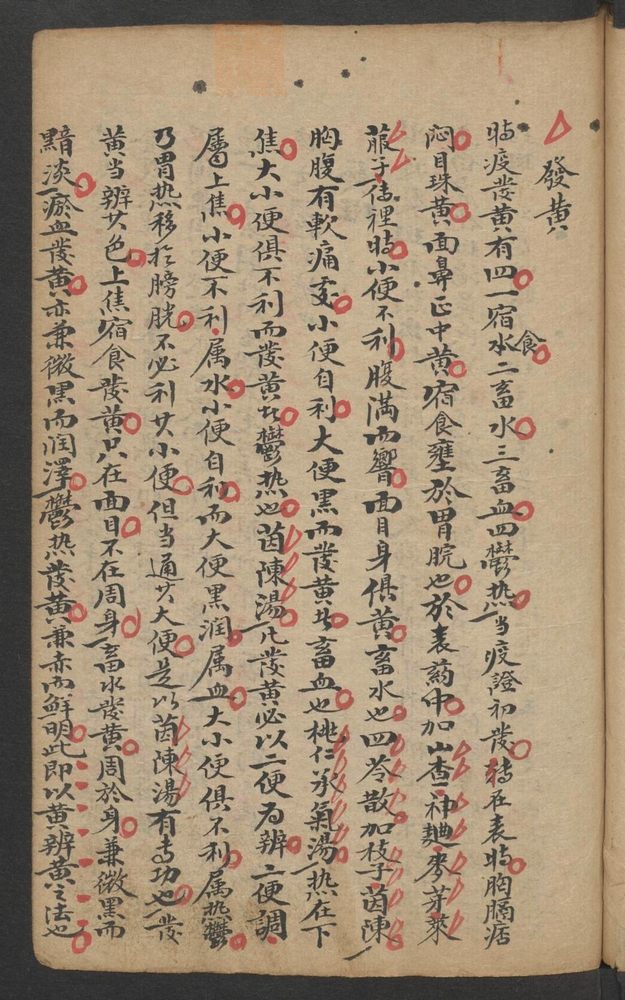 發黃
時疫發黃有四一宿食水二畜水三畜血四鬱热当疫證初發時在表時胸膈痞
悶目珠黃面鼻正中黃宿食壅於胃脘也於表药中加山查神麯麥芽萊
菔子傳裡時小便不利腹滿而響面目身俱黃畜水也四苓散加枝子茵陳
胸腹有軟痛处小便自利大便黑而發黃者畜血也桃仁承氣湯热在下
焦大小便俱不利而發黃者鬱热也茵陳湯凡發黃必以二便为辨二便調
屬上焦小便不利属水小便自利而大便黑润属血大小便俱不利属热鬱
乃胃热移於膀胱不必利其小便但当通其大便是以茵陳湯有专功也發
黃当辨其色上焦宿食發黃只在面目不在周身畜水發黃周於身兼微黑而
黯淡瘀血發黃亦兼微黑而润澤鬱热發黃兼赤而鮮明此即以黃辨黃之法也